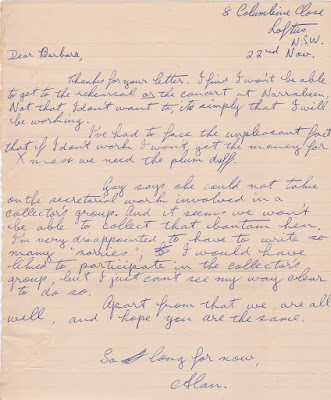 8 Columbine Close
Loftus
N.S.W.
Dear Barbara,
22nd Nov.
Thanks for your letter. I find I won't be able
to get to the rehearsal or the concert at Narrabeen.
Not that I don't want to, its simply that I will
be working.
I've had to face the unpleasant fact
that if I don't work I won't get the money for
Xmas & we need the plum duff.
Gay says she could not take
on the secretarial work involved in a
collectors group. And it seems we won't
be able to collect that bantam hen.
I'm very disappointed to have to write so
many "sorries", I would have
liked to participate in the collectors
group, but I just can't see my way clear
to do so.
Apart from that we are all
well, and hope you are the same.
So long for now,
Alan.